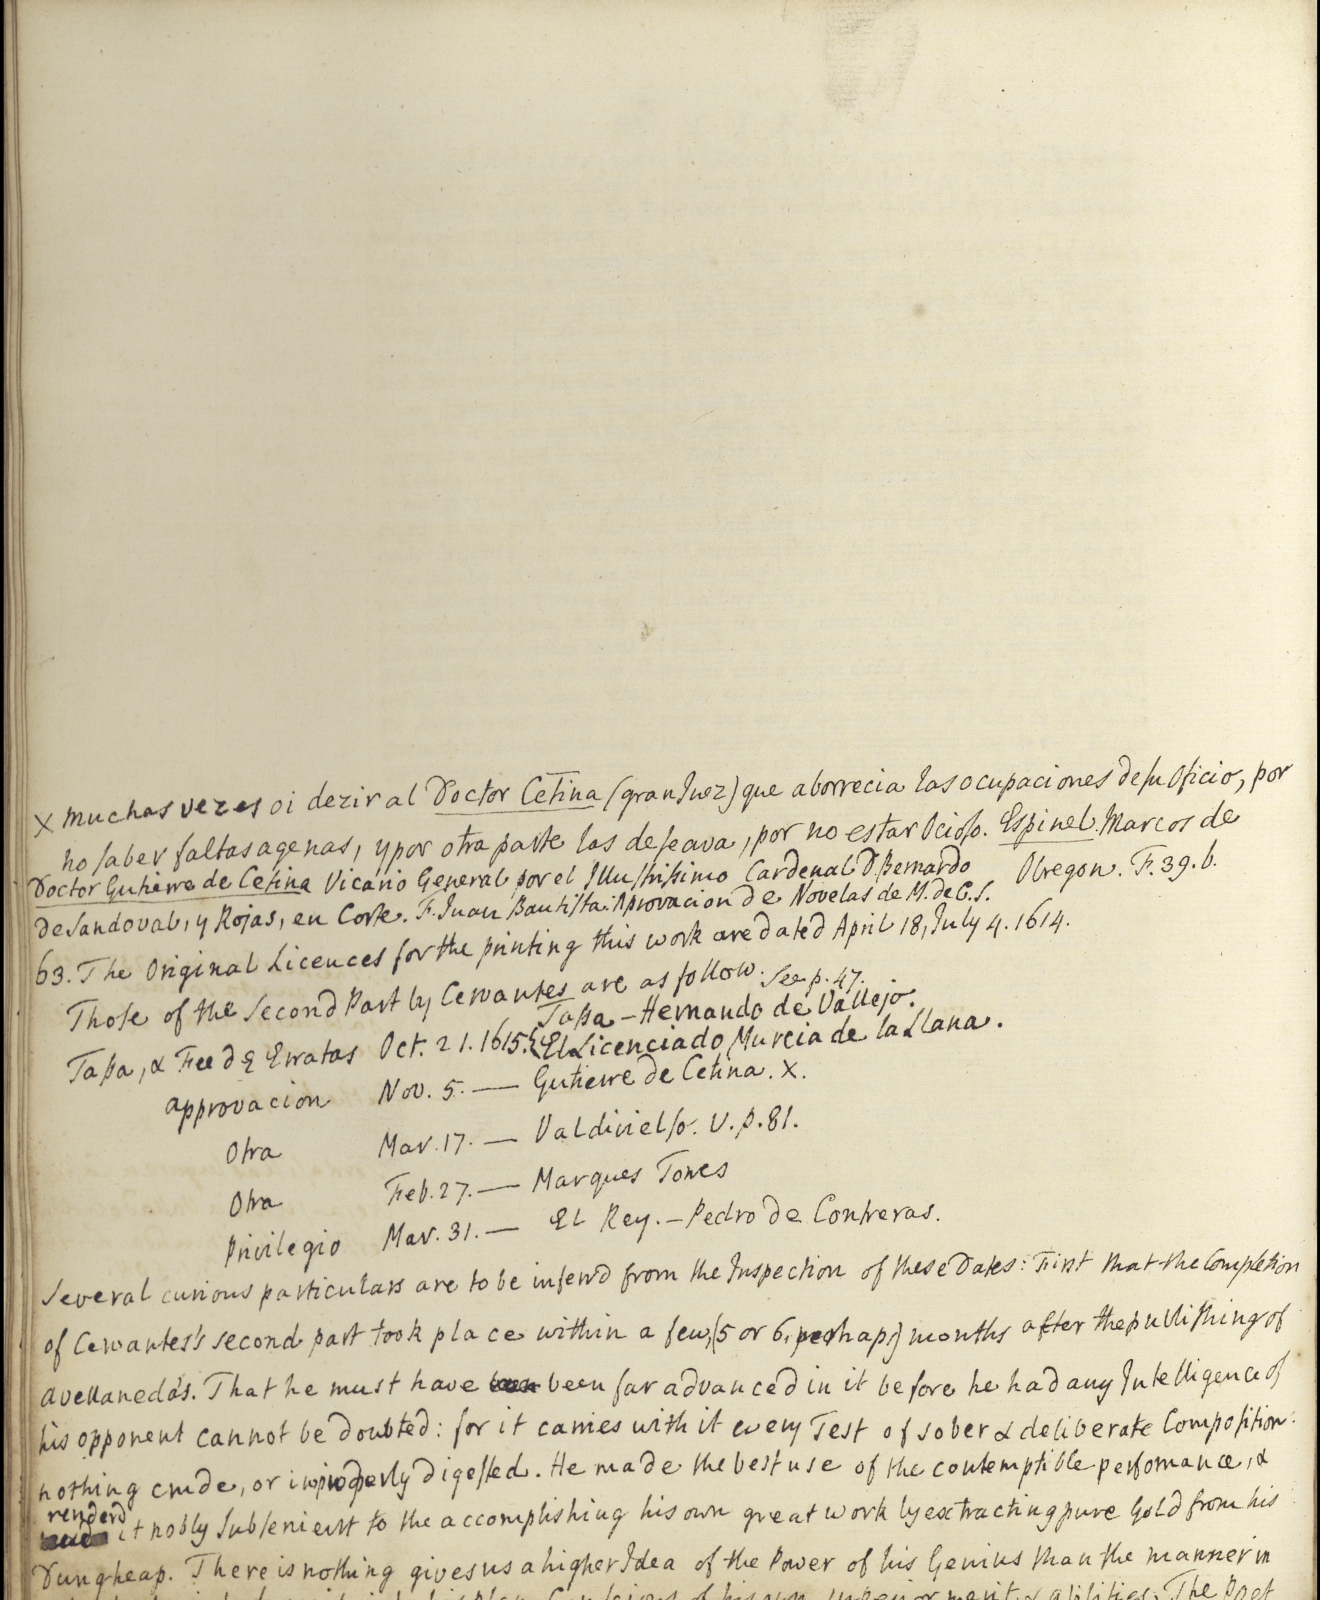 X muchas vezes oi dezir al Doctor Cetina (gran Juez) que aborrecia las ocupaciones de su Oficio, por
no saber faltas agenas, y por otra parte las deseava, por no estar Ocioso. Espinel. Marcos de
Obregon. F. 39. b.
Doctor Gutierre de Cetina Vicario General por el Illustrissimo Cardenal D. Bernardo
de Sandoval, y Rojas, en Corte. F. Juan Bautista. Aprovacion de Novelas de M. de C. S.
63. The Original Licences for the printing this work are dated April 18, July 4. 1614.
Those of the Second Part by Cervantes are as follow. See p. 47.
Tassa - Hernando de Vallejo.
Tassa, & Fee de Erratas Oct. 21. 1615. { El Licenciado Murcia de la Llana.
approvacion Nov. 5. — Gutierre de Cetina. X.
Otra Mar. 17. — Valdivielso. V. p. 81.
Otra Feb. 27. — Marques Torres
Privilegio Mar. 31. — El Rey. - Pedro de Contreras.
Several curious particulars are to be inferrd from the Inspection of these Dates: First that the Completion
of Cervantes's second part took place within a few, [5 or 6, perhaps] months after the publishing of
Avellaneda's. That he must have been far advanced in it before he had any Intelligence of
his opponent cannot be doubted: for it carries with it every Test of sober & deliberate Composition:
nothing crude, or improperly digested. He made the best use of the contemptible performance, &
renderd it nobly subservient to the accomplishing his own great work by extracting pure Gold from his
Dungheap. There is nothing gives us a higher Idea of the Power of his Genius than the manner in
of his own superior merit & abilities. The Poet